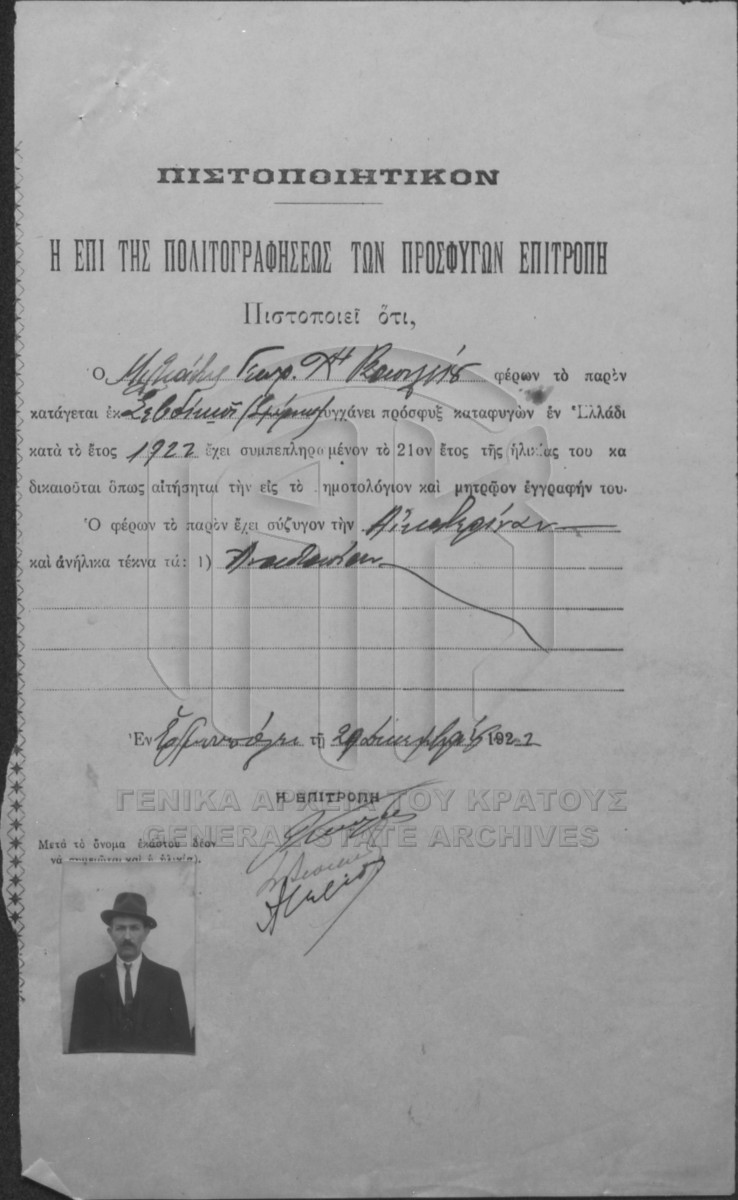 ΠΙΣΤΟΠΟΙΗΤΙΚΟΝ
Η ΕΠΙ ΤΗΣ ΠΟΛΙΤΟΓΡΑΦΗΣΕΩΣ ΤΩΝ ΠΡΟΣΦΥΓΩΝ ΕΠΙΤΡΟΠΗ
Πιστοποιεῖ ὅτι,
Ὁ Μιλτιάδης Γεωρ. φέρων τὸ παρὸν
κατάγεται ἐκ τυγχάνει πρόσφυξ καταφυγὼν ἐν Ἑλλάδι
κατὰ τὸ ἔτος 1922 ἔχει συμπεπληρωμένον τὸ 21ον ἔτος τῆς ἡλικίας του κα
δικαιοῦται ὅπως αἰτήσηται τὴν εἰς τὸ ημοτολόγιον καὶ μητρῷον ἐγγραφήν του.
Ὁ φέρων τὸ παρὸν ἔχει σύζυγον τὴν Αἰκατερίναν
καὶ ἀνήλικα τέκνα τά: 1) Ἀναστασίαν
Ἐν Ἑρμουπόλει τῇ 29 Δεκεμβρίου 1922
Η ΕΠΙΤΡΟΠΗ
ΓΕΝΙΚΑ ΑΡΧΕΙΑ ΤΟΥ ΚΡΑΤΟΥΣ
GENERAL STATE ARCHIVES
Μετὰ τὸ ὄνομα ἑκάστου δέον
νὰ σημειῶται καὶ ἡ ἡλικία).